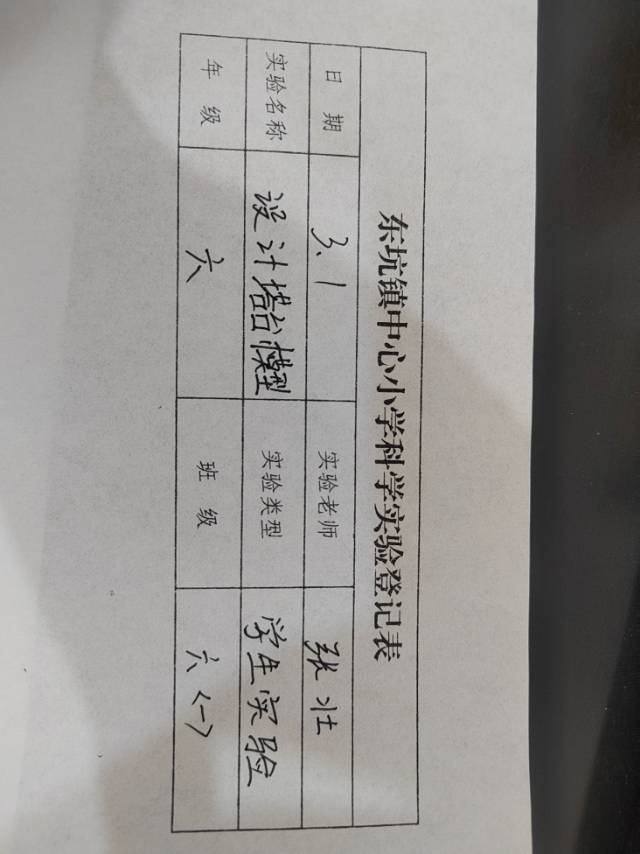 东坑镇中心小学科学实验登记表
日期 3.1 实验老师 张壮
实验名称 设计塔台模型 实验类型 学生实验
年级 六 班级 六(一)